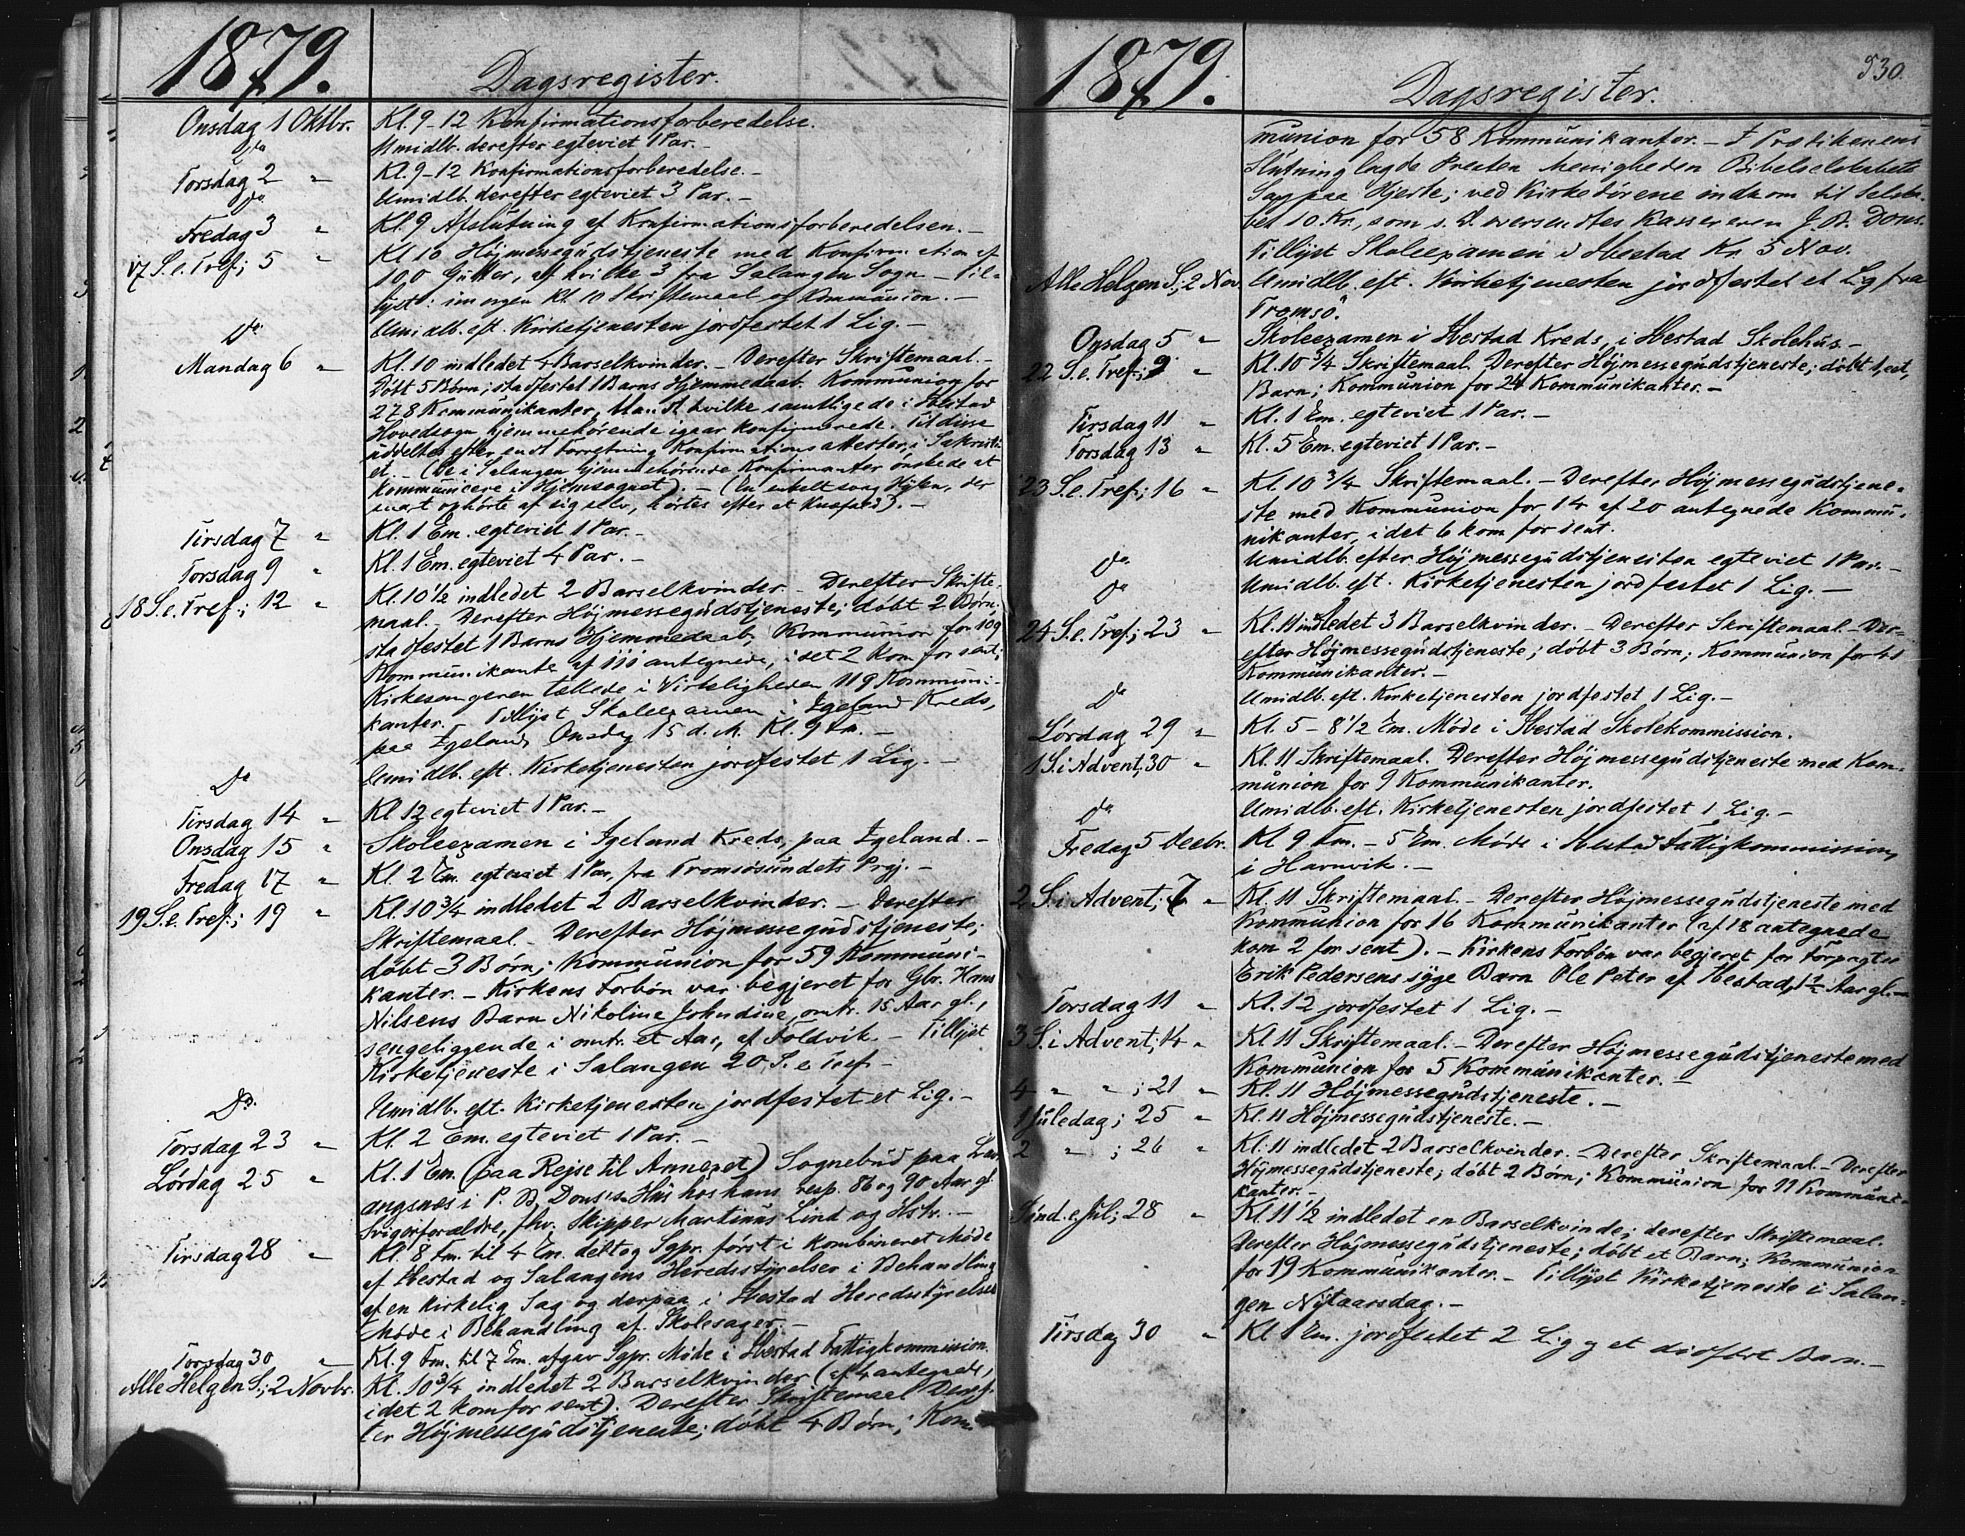 1879.
Dagsregister.
Onsdag 1 Oktbr. Kl. 9-12 Konfirmationsforberedelse.
Do Umidlb. derefter egteviet 1 Par. -
Torsdag 2 " Kl. 9-12 Konfirmationsforberedelse. -
Do Umidlb. derefter egteviet 3 Par. -
Fredag 3 " Kl. 9 Afslutning af Konfirmationsforberedelsen. -
17 S. e. Tref.; 5 " Kl 10 Højmessegudstjeneste med Konfirmation af
100 Gutter, af hvilke 3 fra Salangen Sogn. - Til-
lyst: imorgen Kl. 10 Skriftemaal og Kommunion. -
Do Umidlb. eft. Kirketjenesten jordfestet 1 Lig. -
Mandag 6 " Kl. 10 indledet 4 Barselkvinder. - Derefter Skriftemaal. -
Døbt 5 Børn; stadfestet 1 Barns Hjemmedaab. Kommunion for
278 Kommunikanter, blandt hvilke samtlige de i Ibestad
Hovedsogn hjemmehørende igaar konfirmerede. Til disse
uddeltes efter endt Forretning Konfirmationsattester i Sakristi-
et. - (De i Salangen hjemmehørende Konfirmanter ønskede at
kommunicere i Hjemsognet). - (En enkelt svag Hylen, der
snart ophørte af sig selv, hørtes efter et Knæfald). -
Tirsdag 7 " Kl. 1 Em. egteviet 1 Par. -
Torsdag 9 " Kl. 1 Em. egteviet 4 Par. -
18 S. e. Tref.; 12 " Kl. 10 1/2 indledet 2 Barselkvinder. - Derefter Skrifte-
maal. - Derefter Højmessegudstjeneste; døbt 2 Børn;
stadfestet 1 Barns Hjemmedaab; Kommunion for 109
Kommunikante af 111 antegnede, idet 2 kom for sent;
Kirkesangeren tællede i Virkeligheden 119 Kommuni-
kanter. - Tillyst Skoleexamen i Igeland Kreds,
paa Igeland, Onsdag 15 d. M. Kl. 9 Fm. -
Do Umidlb. eft. Kirketjenesten jordfestet 1 Lig. -
Tirsdag 14 " Kl 12 egteviet 1 Par. -
Onsdag 15 " Skoleexamen i Igeland Kreds, paa Igeland. -
Fredag 17 " Kl. 2 Em. egteviet 1 Par, fra Tromsøsundets Prgj. -
19 S. e. Tref.; 19 " Kl. 10 3/4 indledet 2 Barselkvinder. - Derefter
Skriftemaal. - Derefter Højmessegudstjeneste;
døbt 3 Børn; Kommunion for 59 Kommuni-
kanter. - Kirkens Forbøn var begjeret for Gbr. Hans
Nilsens Barn Nikoline Johndine, omtr. 15 Aar gl.,
sengeliggende i omtr. et Aar, af Foldvik. - Tillyst
Kirketjeneste i Salangen 20 S. e Tref. -
Do. Umidlb. eft. Kirketjenesten jordfestet et Lig. -
Torsdag 23 " Kl. 2 Em. egteviet 1 Par. -
Lørdag 25 " Kl. 1 Em. (paa Rejse til Annexet) Sognebud paa
angsnes i P. B. Dons's Hus hos hans resp. 86 og 90 Aar gl.
Svigerforældre, fhv. Skipper Martinus Lind og Hstr. -
Tirsdag 28 " Kl. 8 Fm. til 4 Em. deltog Sgpr. først i kombineret Møde
af Ibestad og Salangens Heredsstyrelser i Behandling
af en kirkelig Sag og derpaa i Ibestad Heredsstyrelses
Møde i Behandling af Skolesager. -
Torsdag 30 " Kl. 9 Fm. til 7 Em. afgav Sgpr. Møde i Ibestad Fattigkommission.
Alle Helgen S.; 2 Novbr. Kl. 10 3/4 indledet 2 Barselkvinder (af 4 antegnede,
idet 2 kom for sent). Derefter Skriftemaal Deref-
ter Højmessegudstjeneste; døbt 4 Børn; Kom-
1879.
Dagsregister.
530.
munion for 58 Kommunikanter. - I Prædikenens
Slutning lagde Presten Menigheden Bibelselskabets
Sag paa Hjerte; ved Kirkedørene indkom til Selska-
bet 10 Kr., som s. D. oversendtes Kassereren J. B. Dons.
Tillyst Skoleexamen i Ibestad Kr. 5 Nov.
Alle Helgen S.; 2 Nov. Umidlb. eft. Kirketjenesten jordfestet et Lig fra
Tromsø.
Onsdag 5 " Skoleexamen i Ibestad Kreds, i Ibestad Skolehus. -
22 S. e. Tref.; 9 " Kl. 10 3/4 Skriftemaal. Derefter Højmessegudstjeneste; døbt 1, et,
Barn; Kommunion for 24 Kommunikanter. -
Tirsdag 11 " Kl. 1 Em. egteviet 1 Par. -
Torsdag 13 " Kl. 5 Em. egteviet 1 Par. -
23 S. e. Tref.; 16 " Kl. 10 3/4 Skriftemaal. - Derefter Højmessegudstjene-
ste med Kommunion for 14 af 20 antegnede Kommu-
nikanter, idet 6 kom for sent.
Do Umidlb. efter Højmessegudstjenesten egteviet 1 Par. -
Do Umidlb. eft. Kirketjenesten jordfestet 1 Lig. -
24 S. e. Tref.; 23 " Kl. 11 indledet 3 Barselkvinder. - Derefter Skriftemaal. - Der-
efter Højmessegudstjeneste; døbt 3 Børn; Kommunion for 41
Kommunikanter. -
Do Umidlb. eft. Kirketjenesten jordfestet 1 Lig. -
Lørdag 29 " Kl. 5 - 8 1/2 Em. Møde i Ibestad Skolekommission.
1 S. i Advent; 30 " Kl. 11 Skriftemaal. Derefter Højmessegudstjeneste med Kom-
munion for 9 Kommunikanter.
Do Umidlb. eft. Kirketjenesten jordfestet 1 Lig. -
Fredag 5 Decbr. Kl 9 Fm. - 5 Em. Møde i Ibestad Fattigkommission
i Havnvik. -
2 S. i Advent; 7 " Kl. 11 Skriftemaal. - Derefter Højmessegudstjeneste med
Kommunion for 16 Kommunikanter (af 18 antegnede
kom 2 for sent). - Kirkens Forbøn var begjeret for Forpagter
Erik Pedersens syge Barn Ole Peter af Ibestad, 1 1/2 Aar gl. -
Torsdag 11 " Kl. 12 jordfestet 1 Lig. -
3 S. i Advent; 14 " Kl 11 Skriftemaal. - Derefter Højmessegudstjeneste med
Kommunion for 5 Kommunikanter. -
4 " " ; 21 " Kl. 11 Højmessegudstjeneste. -
1 Juledag; 25 " Kl. 11 Højmessegudstjeneste. -
2 " ; 26 " Kl. 11 indledet 2 Barselkvinder. - Derefter Skriftemaal. - Derefter
Højmessegudstjeneste; døbt 2 Børn; Kommunion for 11 Kommuni-
kanter. -
Sønd. e. Jul; 28 " Kl. 11 1/2 indledet en Barselkvinde; derefter Skriftemaal.
Derefter Højmessegudstjeneste; døbt et Barn; Kommunion
for 19 Kommunikanter. - Tillyst Kirketjeneste i Salan-
gen Nytaarsdag. -
Tirsdag 30 " Kl 1 Em. jordfestet 2 Lig og et dødfødt Barn. -